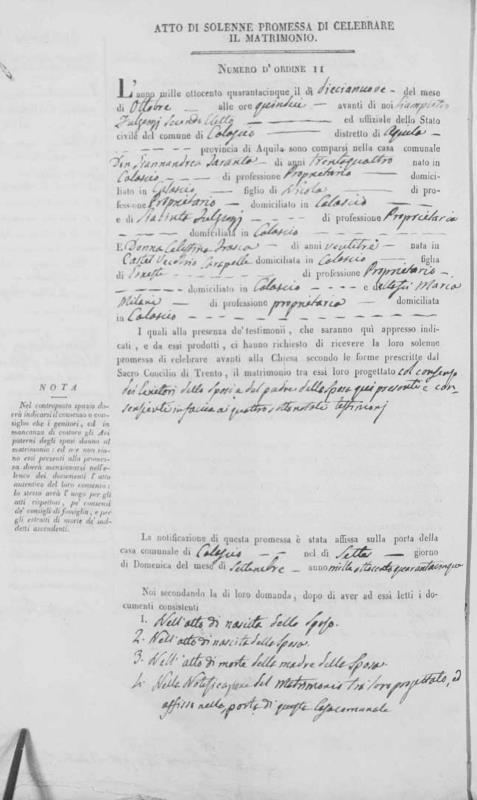 ATTO DI SOLENNE PROMESSA DI CELEBRARE
IL MATRIMONIO.
NUMERO D'ORDINE 11
L'anno mille ottocento quarantacinque il dì diecianove del mese
di Ottobre alle ore quindici avanti di noi Giampietro
Secondo Eletto ed uffiziale dello Stato
civile del comune di Calascio distretto di Aquila
provincia di Aquila sono comparsi nella casa comunale
Don Giannandrea Taranta di anni trentaquattro nato in
Calascio di professione Proprietario domici-
liato in Calascio figlio di Nicola di pro-
fessione Proprietario domiciliato in Calascio
e di di professione Proprietaria
domiciliata in Calascio
E Donna Celestina Frasca di anni ventitre nata in
Castel Vecchio Carapelle domiciliata in Calascio figlia
di di professione Proprietario
domiciliato in Calascio e della fu Maria
Milani di professione proprietaria domiciliata
in Calascio
I quali alla presenza de' testimonii, che saranno quì appresso indi-
cati, e da essi prodotti, ci hanno richiesto di ricevere la loro solenne
promessa di celebrare avanti alla Chiesa secondo le forme prescritte dal
Sacro Concilio di Trento, il matrimonio tra essi loro progettato col consenso
dei Genitori dello Sposo e del padre della Sposa qui presenti e con-
senzienti in faccia ai quattro sottonotati testimonj
NOTA
Nel contrapposto spazio do-
vrà indicarsi il consenso o con-
siglio che i genitori, ed in
mancanza di costoro gli Avi
paterni degli sposi danno al
matrimonio: ed ove non sia-
no essi presenti alla promes-
sa dovrà menzionarsi nell'e-
lenco dei documenti l'atto
autentico del loro consenso:
lo stesso avrà luogo per gli
atti rispettosi, pe' consensi
de' consigli di famiglia, e per
gli estratti di morte de' ind-
detti ascendenti.
La notificazione di questa promessa è stata affissa sulla porta della
casa comunale di Calascio nel dì Sette giorno
di Domenica del mese di Settembre anno mille ottocento quarantacinque
Noi secondando la di loro domanda, dopo di aver ad essi letti i do-
cumenti consistenti
1. Nell'atto di nascita dello Sposo.
2. Nell'atto di nascita della Sposa
3. Nell'atto di morte della madre della Sposa
4. Nella Notificazione del matrimonio tra loro progettato, ed
affissa nella porta di questa Casa comunale